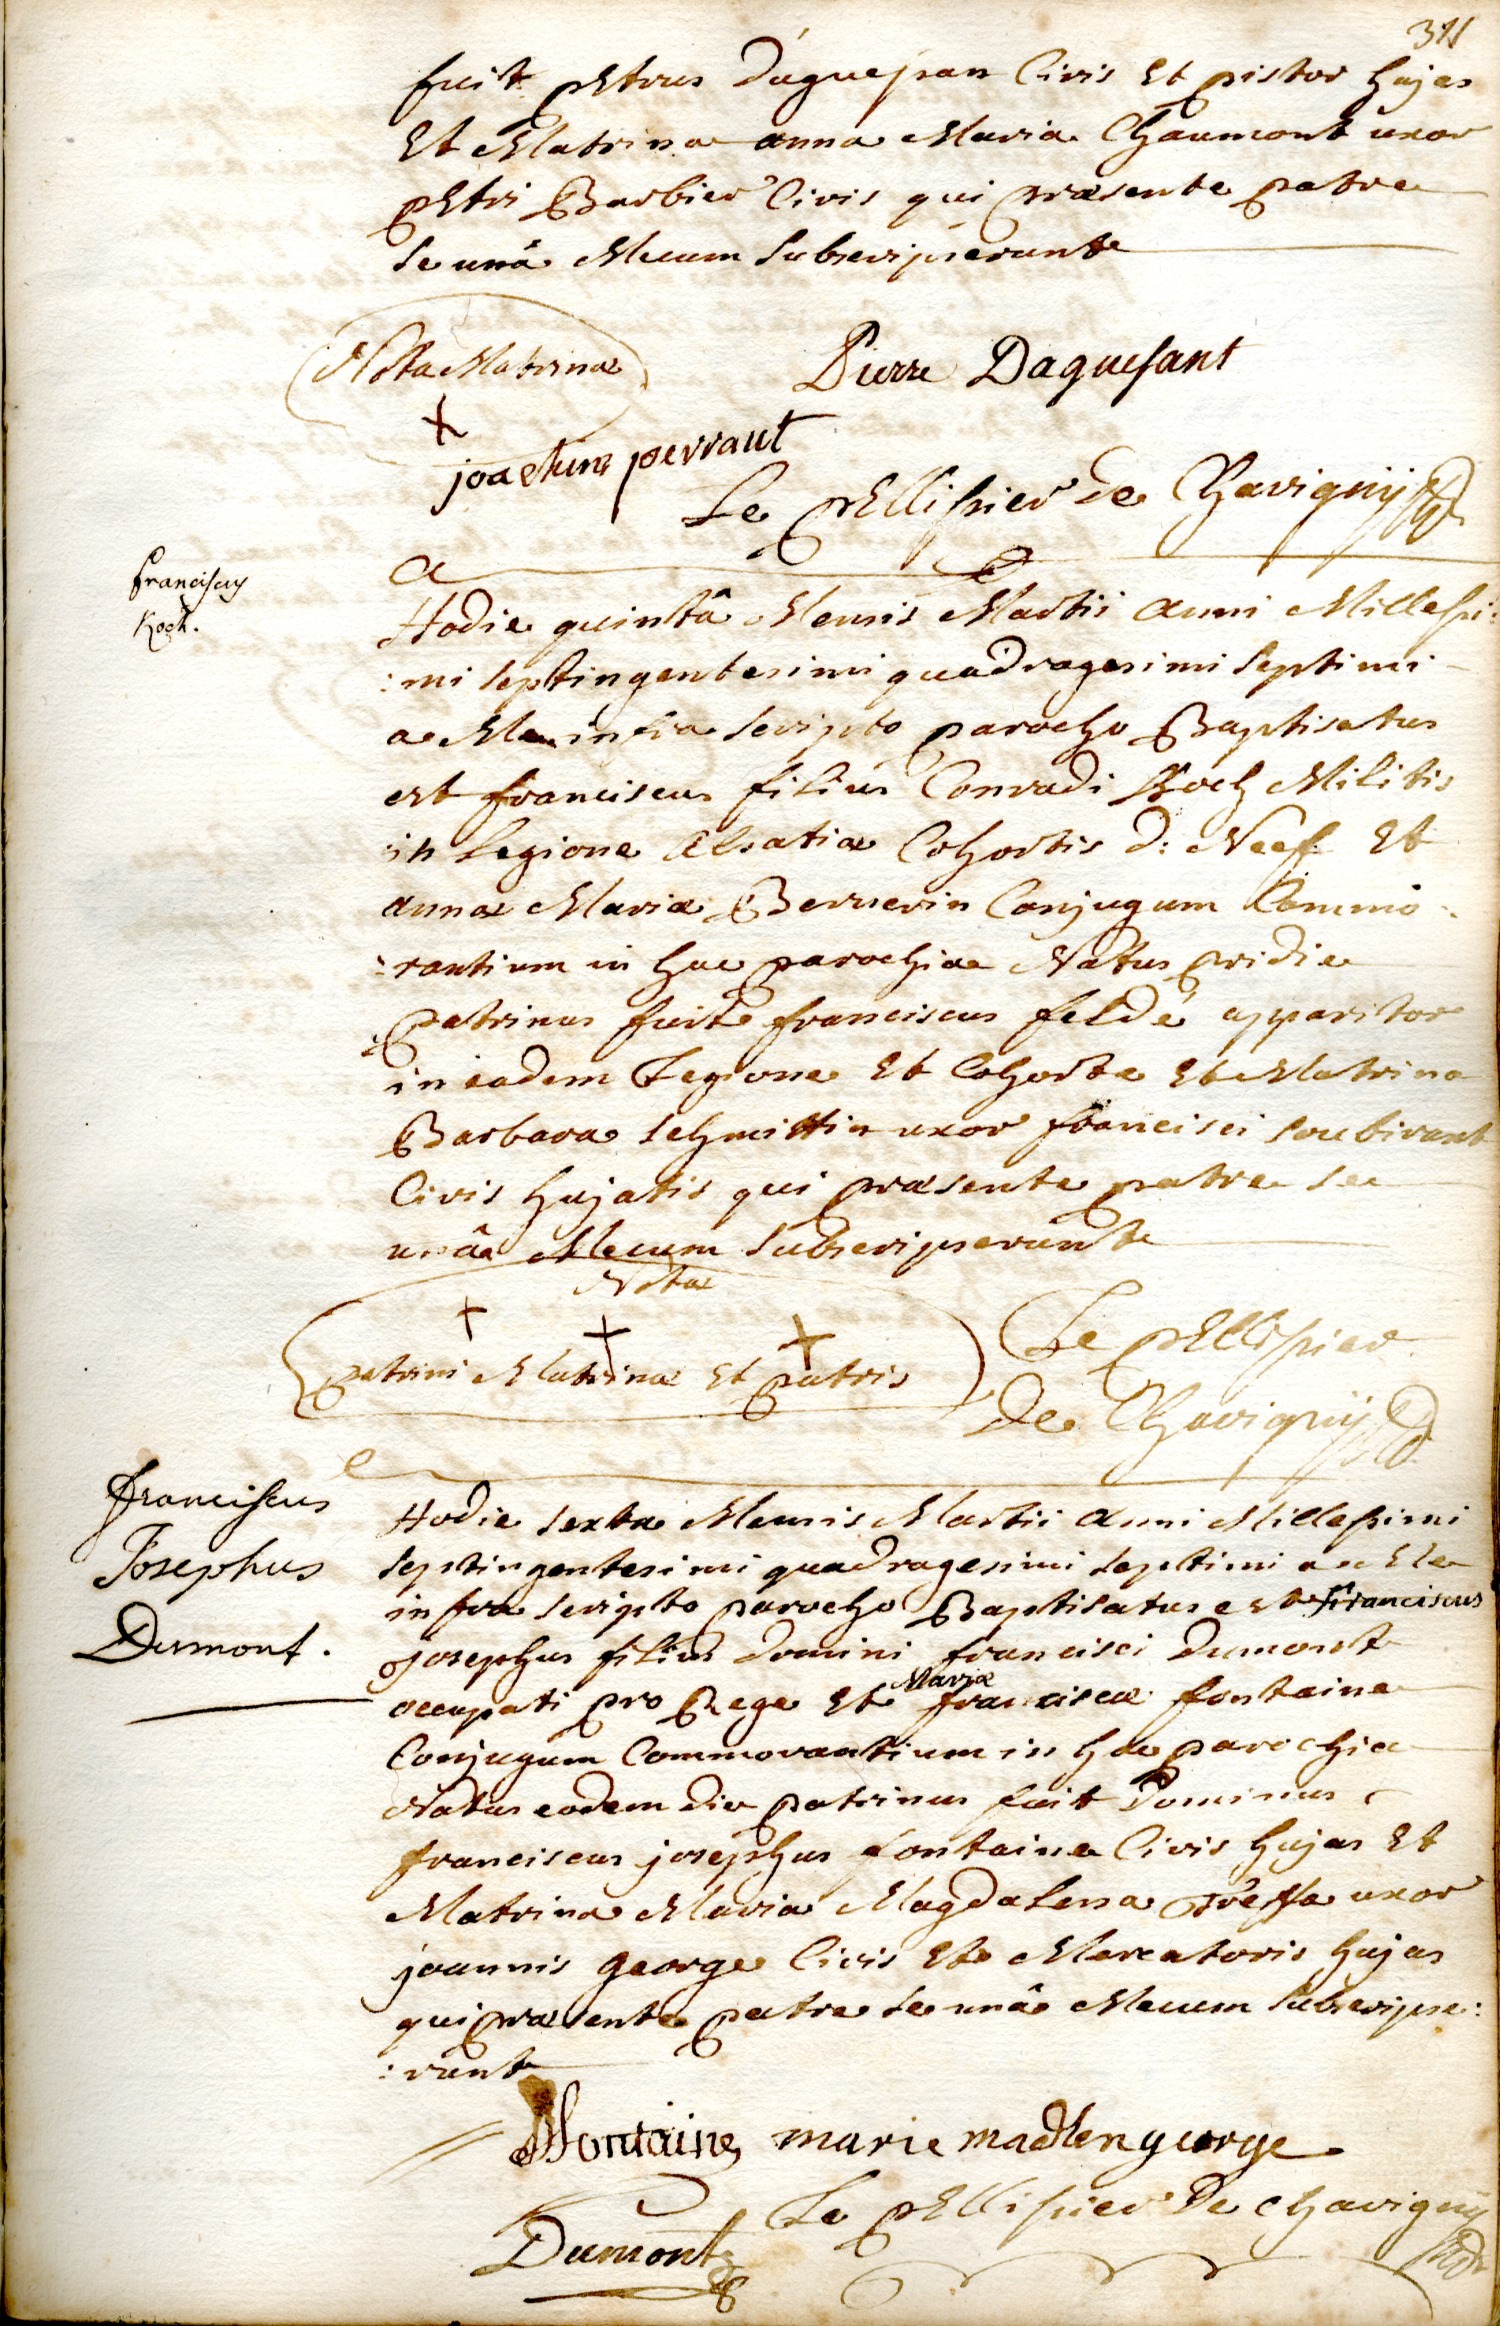 fuit pEtrus Daguesan Civis Et pistor hujas
Et Matrina anna Maria Chaumont uxor
pEtri Barbier Civis qui præsente patre
se unâ Mecum subscripserunt
Nota Matrinæ
Pierre Daguesant
joachim perraut
Le pEllissier de Chavignÿ
franciscus
Koch.
Hodie quintâ Mensis Martii anni Millessi:
:mi septingentesimi quadragesimi septimi
a Me infra scripto parocho Baptisatus
est franciscus filius Conradi Koch Militis
in Legione Alsatiæ Cohortis d: Neef Et
annæ Mariæ Bernerin Conjugum Commo:
:rantium in hac parochia Natus pridie
patrinus fuit franciscus feldé apparitor
in eadem Legione Et Cohorte Et Matrina
Barbara schmittin uxor francisci soubirant
Civis hujatis qui præsente patre se
unâ Mecum subscripserunt
Nota
patrini Matrinæ Et patris
Le pEllissier
De Chavignÿ
franciscus
Josephus
Dumont.
Hodie sexta Mensis Martii anni Millessimi
septingentesimi quadragesimi septimi a Me
infra scripto parocho Baptisatus est franciscus
josephus filius domini francisci Dumont
Mariæ
occupati pro Rege Et franciscæ fontaine
Conjugum Commorantium in hac parochia
Natus eodem die patrinus fuit Dominus
franciscus josephus fontaine Civis hujas Et
Matrina Maria Magdalena uxor
joannis george Civis Et Mercatoris hujas
qui præsente patre se unâ Mecum subscripse:
:runt
fontaine marie madlen george
Le pEllissier De Chavignÿ
Dumont